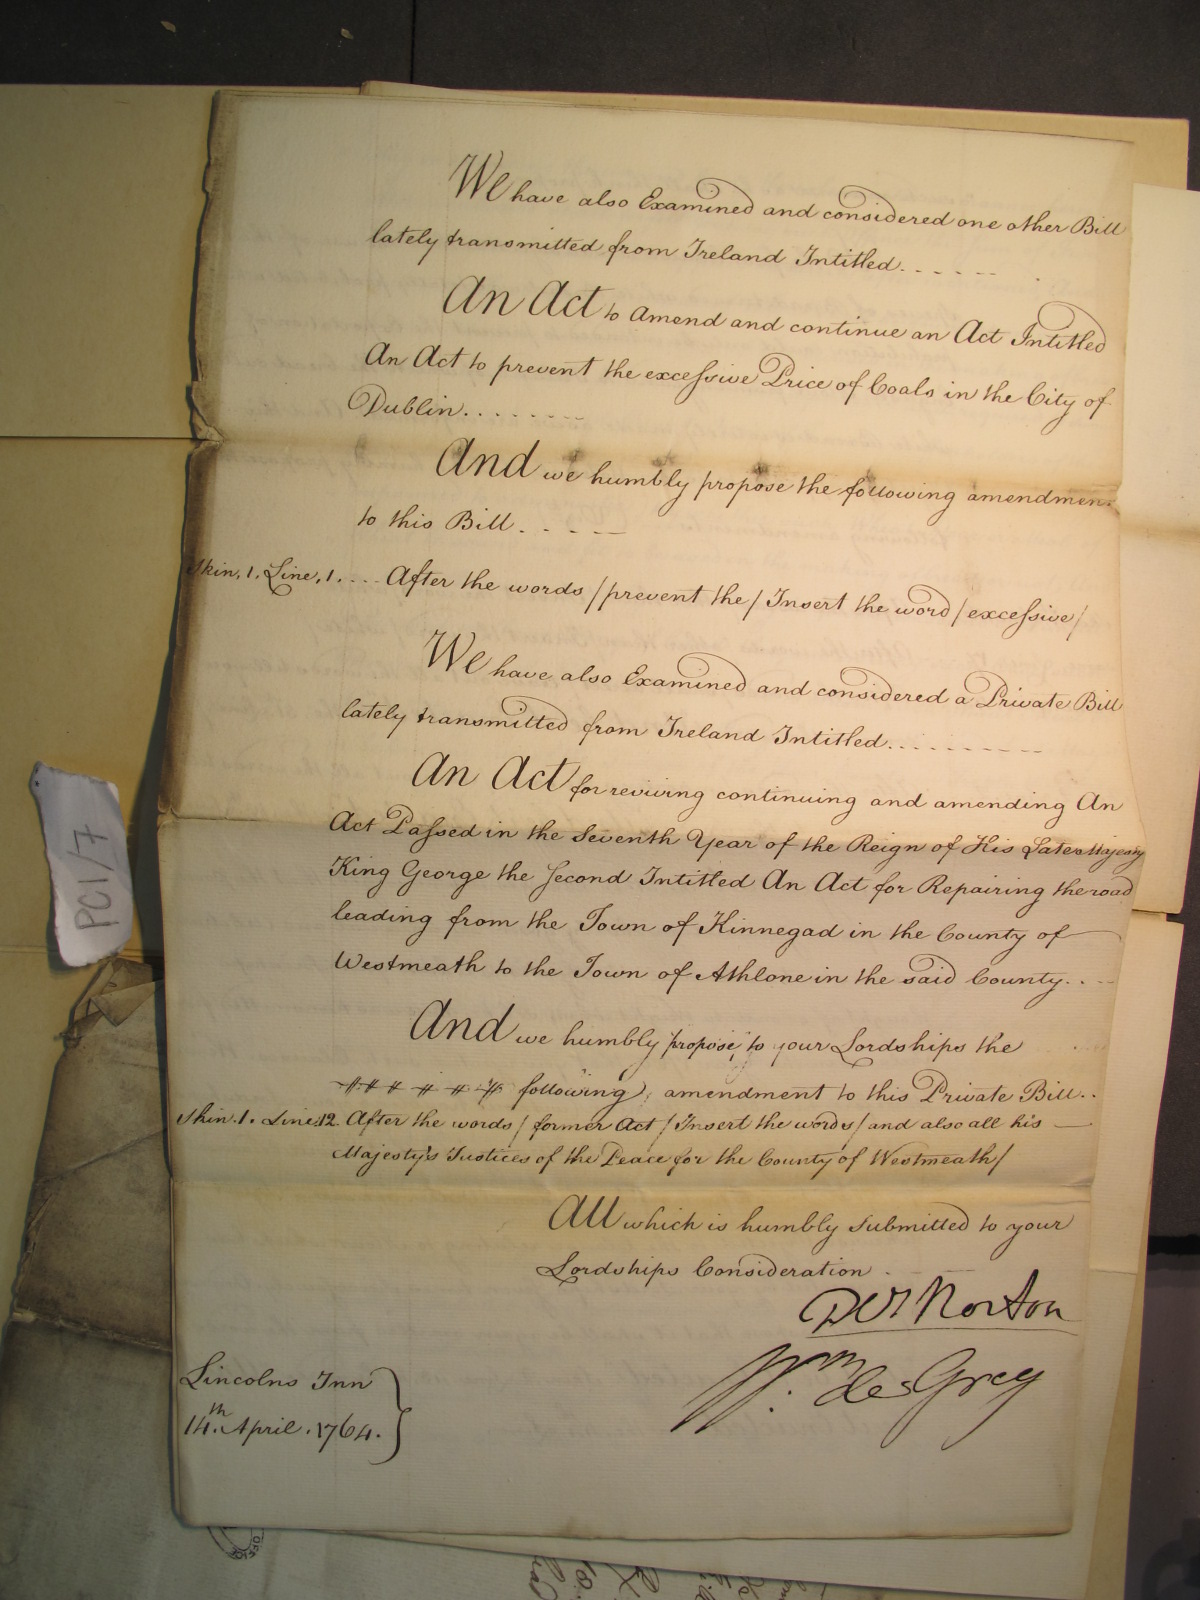 We have also Examined and considered one other Bill
lately transmitted from Ireland Intitled. - - - - -
An Act to amend and continue an Act Intitled
An Act to prevent the excessive Price of Coals in the City of
Dublin. . . . . . .
And we humbly propose the following amendmen
to this Bill. - - - -
Skin. 1. Line, 1. . . . After the words /prevent the/ Insert the word /excessive/
We have also Examined and considered a Private Bill
lately transmitted from Ireland Intitled. . . . . . . . . .
An Act for reviving continuing and amending An
Act Passed in the Seventh Year of the Reign of His Late Majesty
King George the Second Intitled An Act for Repairing the road
leading from the Town of Kinnegad in the County of
Westmeath to the Town of Athlone in the said County. . . -
And we humbly propose to your Lordships the
following amendment to this Private Bill. .
Skin. 1. Line 12. After the words / former Act / Insert the words / and also all his
Majesty's Justices of the Peace for the County of Westmeath/
All which is humbly submitted to your
Lordships Consideration
Norton
Wm. de Grey
Lincolns Inn
14th. April. 1764.
PC1/7